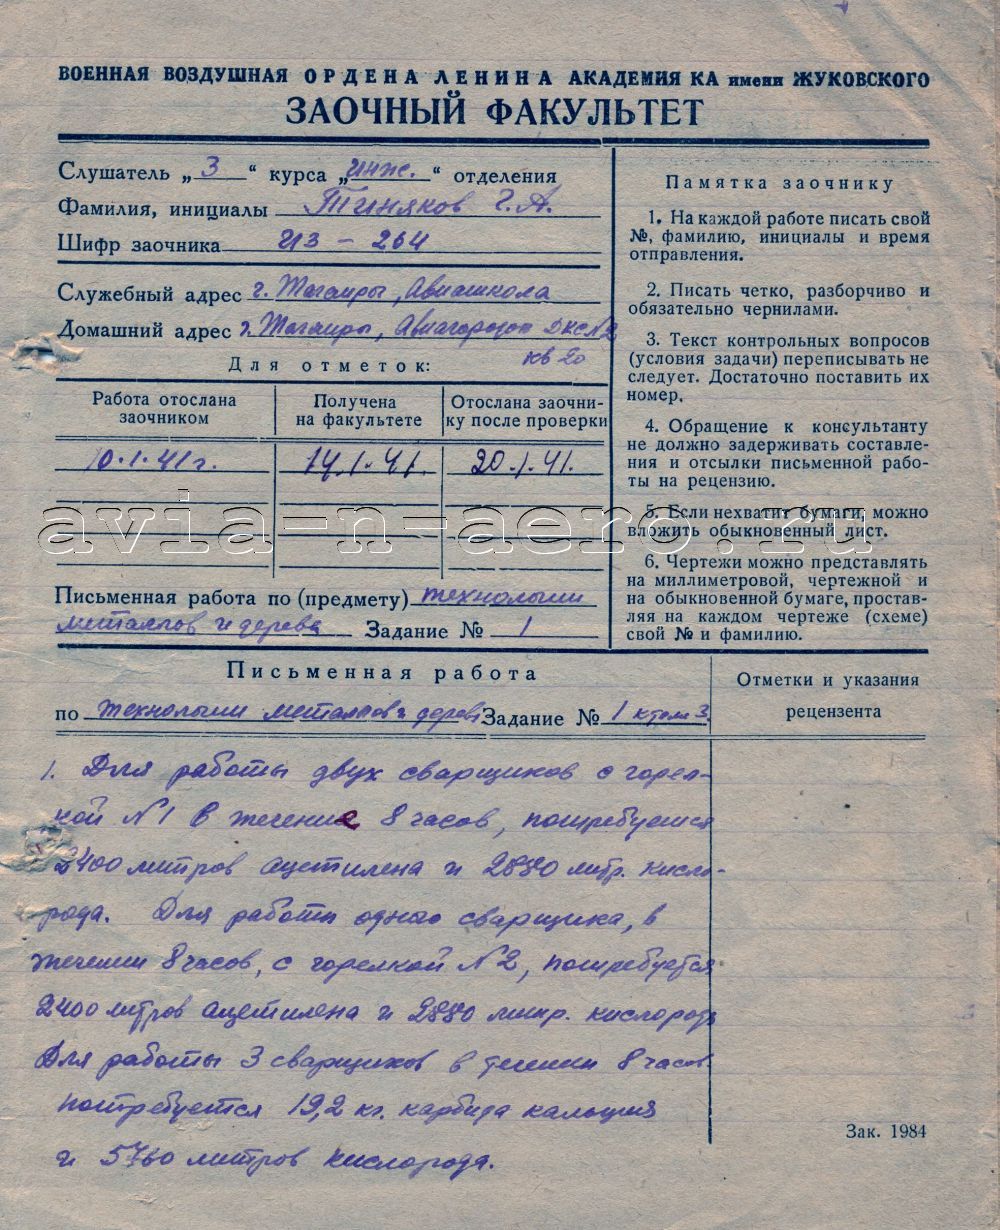 ВОЕННАЯ ВОЗДУШНАЯ ОРДЕНА ЛЕНИНА АКАДЕМИЯ КА имени ЖУКОВСКОГО
ЗАОЧНЫЙ ФАКУЛЬТЕТ
Слушатель „3“ курса „инж.“ отделения
Фамилия, инициалы Тиняков Г.А.
Шифр заочника ИЗ – 264
Служебный адрес г. Чагаиры, Авиашкола
Домашний адрес г. Авиагородок ДКС №2
кв 20
Для отметок:
Работа отослана заочником
Получена на факультете
Отослана заочнику после проверки
10.1.41г.
14.1.41.
20.1.41.
Письменная работа по (предмету) технологии
металлов и дерева Задание № 1
Памятка заочнику
1. На каждой работе писать свой
№, фамилию, инициалы и время
отправления.
2. Писать четко, разборчиво и
обязательно чернилами.
3. Текст контрольных вопросов
(условия задачи) переписывать не
следует. Достаточно поставить их
номер.
4. Обращение к консультанту
не должно задерживать составле-
ния и отсылки письменной рабо-
ты на рецензию.
5. Если нехватит бумаги, можно
вложить обыкновенный лист.
6. Чертежи можно представлять
на миллиметровой, чертежной и
на обыкновенной бумаге, простав-
ляя на каждом чертеже (схеме)
свой № и фамилию.
avia-n-aero.ru
Письменная работа
по технологии металлов и дерева Задание № 1 к теме 3.
Отметки и указания
рецензента
1. Для работы двух сварщиков с горел-
кой №1 в течение 8 часов, потребуется
2400 литров ацетилена и 2880 литр. кисло-
рода. Для работы одного сварщика, в
течении 8 часов, с горелкой №2, потребуется
2400 литров ацетилена и 2880 литр. кислорода
Для работы 3 сварщиков в течении 8 часов
потребуется 19,2 кг. карбида кальция
и 5760 литров кислорода.
Зак. 1984